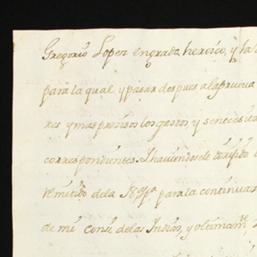 Gregorio Lopez en grado heroico, y la
para la qual y pasar despues a la prueva
res y mas precisos los gastos, y se necesita
correspondientes. Y haviendose
remitido de la para la continuas
de mi Consº de las Indias, y ultimamte